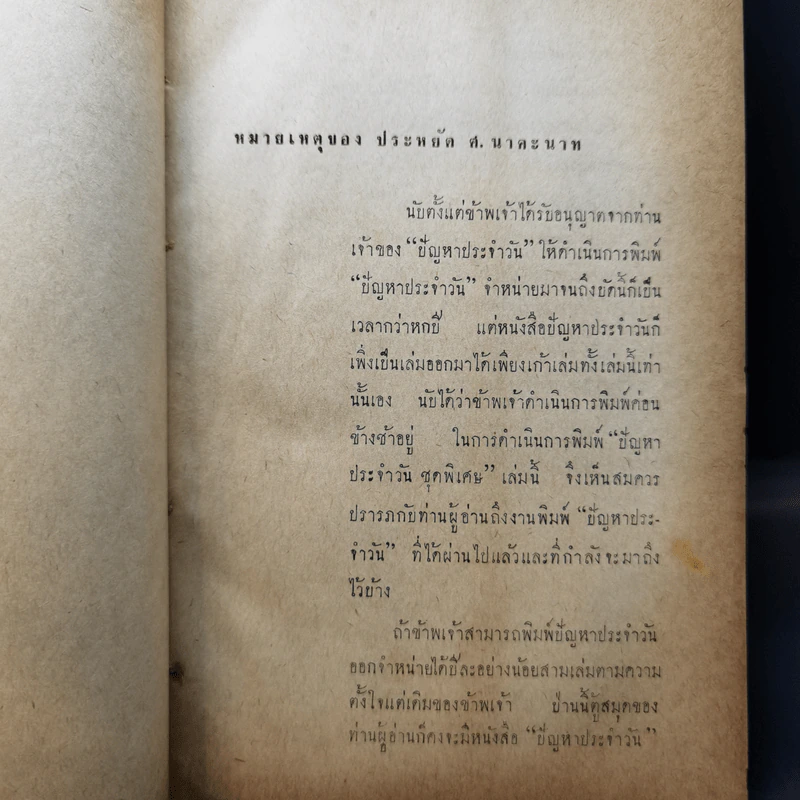 หมายเหตุของ ประหยัด ศ. นาคะนาท
นับตั้งแต่ข้าพเจ้าได้รับอนุญาตจากท่าน
เจ้าของ “ปัญหาประจำวัน” ให้ดำเนินการพิมพ์
“ปัญหาประจำวัน” จำหน่ายมาจนถึงบัดนี้ก็เป็น
เวลากว่าหกปี แต่หนังสือปัญหาประจำวันก็
เพิ่งเป็นเล่มออกมาได้เพียงเก้าเล่มทั้งเล่มนี้เท่า
นั้นเอง นับได้ว่าข้าพเจ้าดำเนินการพิมพ์ค่อน
ข้างช้าอยู่ ในการดำเนินการพิมพ์ “ปัญหา
ประจำวัน ชุดพิเศษ” เล่มนี้ จึงเห็นสมควร
ปรารภกับท่านผู้อ่านถึงงานพิมพ์ “ปัญหาประ-
จำวัน” ที่ได้ผ่านไปแล้วและที่กำลังจะมาถึง
ไว้บ้าง
ถ้าข้าพเจ้าสามารถพิมพ์ปัญหาประจำวัน
ออกจำหน่ายได้ปีละอย่างน้อยสามเล่มตามความ
ตั้งใจแต่เดิมของข้าพเจ้า ป่านนี้ตู้สมุดของ
ท่านผู้อ่านก็คงจะมีหนังสือ “ปัญหาประจำวัน”